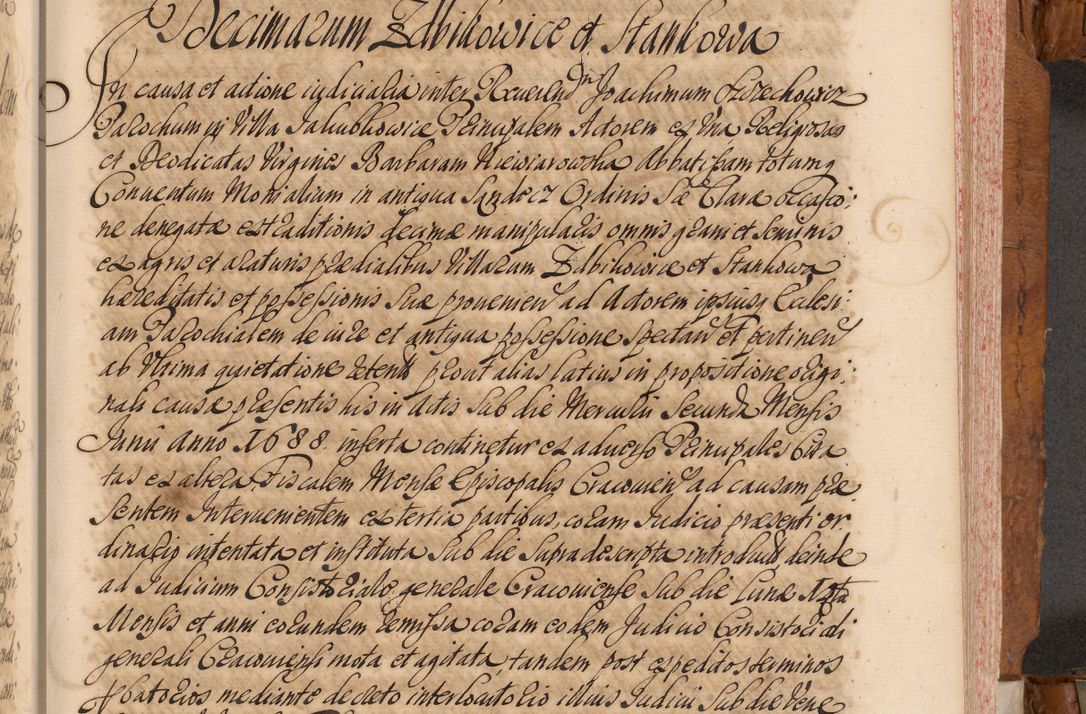 Decimarum Zdbikowice et Stankowa
In causa et actione iudicialia inter Reuerendm Joachimum Ozrechowicz
Parochum in Villa Jakubkowice Principalem Actorem ex vna Religiosas
et Deodicatas Virgines Barbaram Niewiarowska Abbatissam totumq
Conuentum Monialium in antiqua Sandecz Ordinis Sæ Claræ occasio:
ne denegatæ extraditionis decimæ manipularis omnis grani et seminis
ex agris et araturis prædialibus Villarum Zdbikowice et Stankowa
hæreditatis et possessionis suæ prouenien ad Actorem ipsiusq Eccles:
am Parochialem de iure et antiqua possessione spectan et pertinen
ab Vltima quietatione retent prout alias latius in propositione origi:
nali causæ præsentis his in Actis sub die Mercurii Secunda Mensis
Junii Anno 1688 inserta continetur ex aduerso Principales Cita
tas ex altera, Fiscalem Mensæ Episcopalis Cracouien ad causam præ
sentem Interuenientem ex tertia partibus, coram Judicio præsenti or
dinario intentata et instituta sub die supra descripta introduct, deinde
ad Judicium Consistoriale generale Cracouiense sub die Lunæ
Mensis et anni eorundem remissa coram eodem Judicio Consistoriali
generali Cracouiensi mota et agitata, tandem post expeditos terminos
probatorios mediante decreto interlocutorio illius Judicii sub die Vene